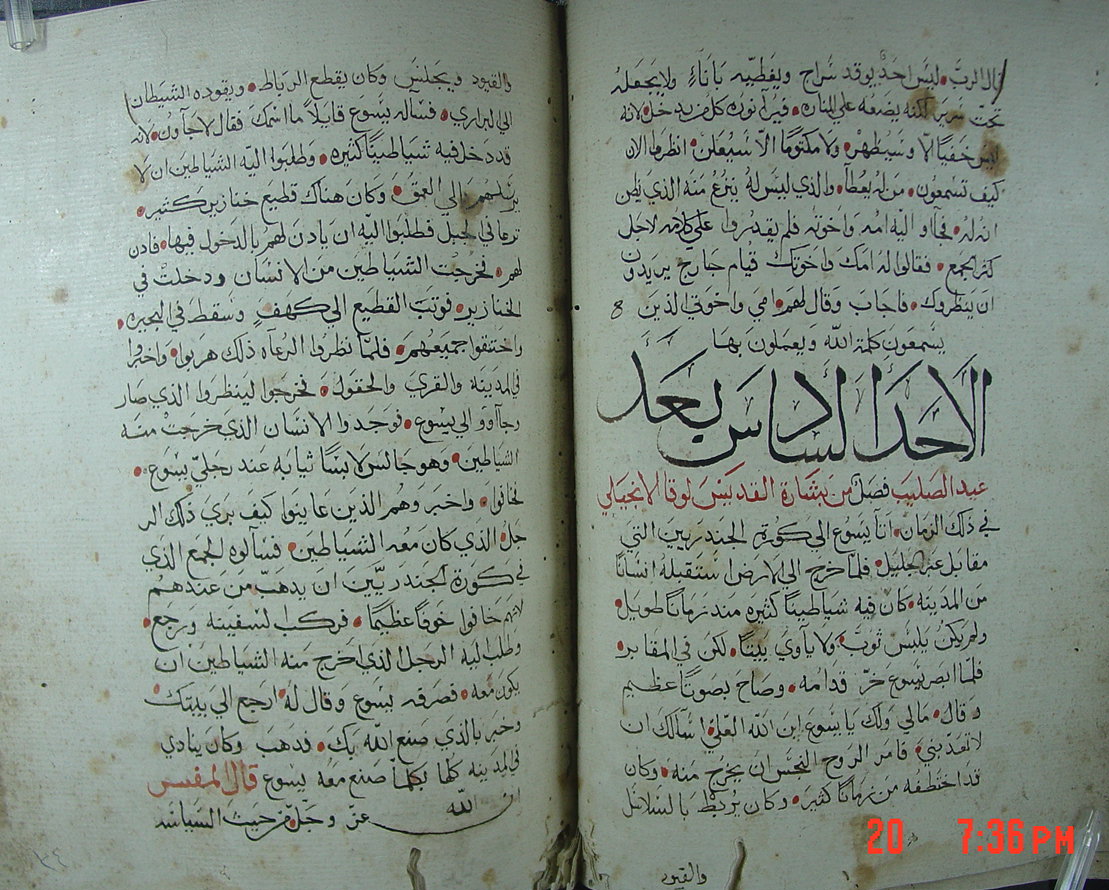 قال الرب ليس احد يوقد سراج ويغطيه باناء ولا يجعله
تحت سرير لكنه يضعه على المناره فيرا نوره كل من يدخل لانه
ليس خفيا الا وسيظهر ولا مكتوما الا سيعلن انظروا الان
كيف تسمعون من له يعطا والذي ليس له ينزع منه الذي يظن
انه له فجاو اليه امه واخوته فلم يقدروا على كلامه لاجل
كثر الجمع فقالوا له امك واخوتك قيام خارج يريدون
ان ينظروك فاجاب وقال لهم امي واخوتي الذين
يسمعون كلمة الله ويعملون بها
الاحد السادس بعد
عيد الصليب فصل من بشارة القديس لوقا الانجيلي
في ذلك الزمان اتا يسوع الى كورة الجندريين التي
مقابل عبر الجليل فلما خرج الي الارض استقبله انسانا
من المدينه كان فيه شياطينا كثيره منذ زمانا طويل
ولم يكن يلبس ثوب ولا ياوي بيتا لكن في المقابر
فلما ابصر يسوع خر قدامه وصاح بصوتا عظيم
وقال مالي ولك يا يسوع ابن الله العلي اسالك ان
لا تعذبني فامر الروح النجس ان يخرج منه وكان
قد اختطفه من زمانا كثير وكان يربط بالسلاسل
والقيود
والقيود ويحلس وكان يقطع الرباط ويقوده الشيطان
الي البراري فساله يسوع قايلا ما اسمك فقال لاجاون لانه
قد دخل فيه شياطينا كثيره وطلبوا اليه الشياطين ان لا
يرسلهم الي العمق وكان هناك قطيع خنازير كثير
ترعا في الجبل فطلبوا اليه ان ياذن لهم بالدخول فيها فاذن
لهم فخرجت الشياطين من الانسان ودخلت في
الخنازير فوثب القطيع الي كهف وسقط في البحيره
واختنقوا جميعهم فلما نظروا الرعاه ذلك هربوا واخبروا
في المدينه والقري والحقول فخرجوا لينظروا الذي صار
وجاوو الي يسوع فوجدوا الانسان الذي خرجت منه
الشياطين وهو جالس لابسا ثيابه عند رجلي يسوع
فخافوا واخبروهم الذين عاينوا كيف بري ذلك الر
جل الذي كان معه الشياطين فسالوه الجمع الذي
في كورة الجندريين ان يذهب من عندهم
لانهم خافوا خوفا عظيما فركب السفينه ورجع
وطلب اليه الرجل الذي اخرج منه الشياطين ان
يكون معه فصرفه يسوع وقال له ارجع الي بيتك
وخبر بالذي صنع الله بك فذهب وكان ينادي
في المدينه كلها بكلما صنع معه يسوع قال المفسر
ان الله عز وجل من حيث السياسه
٣٤
20 7:36 PM